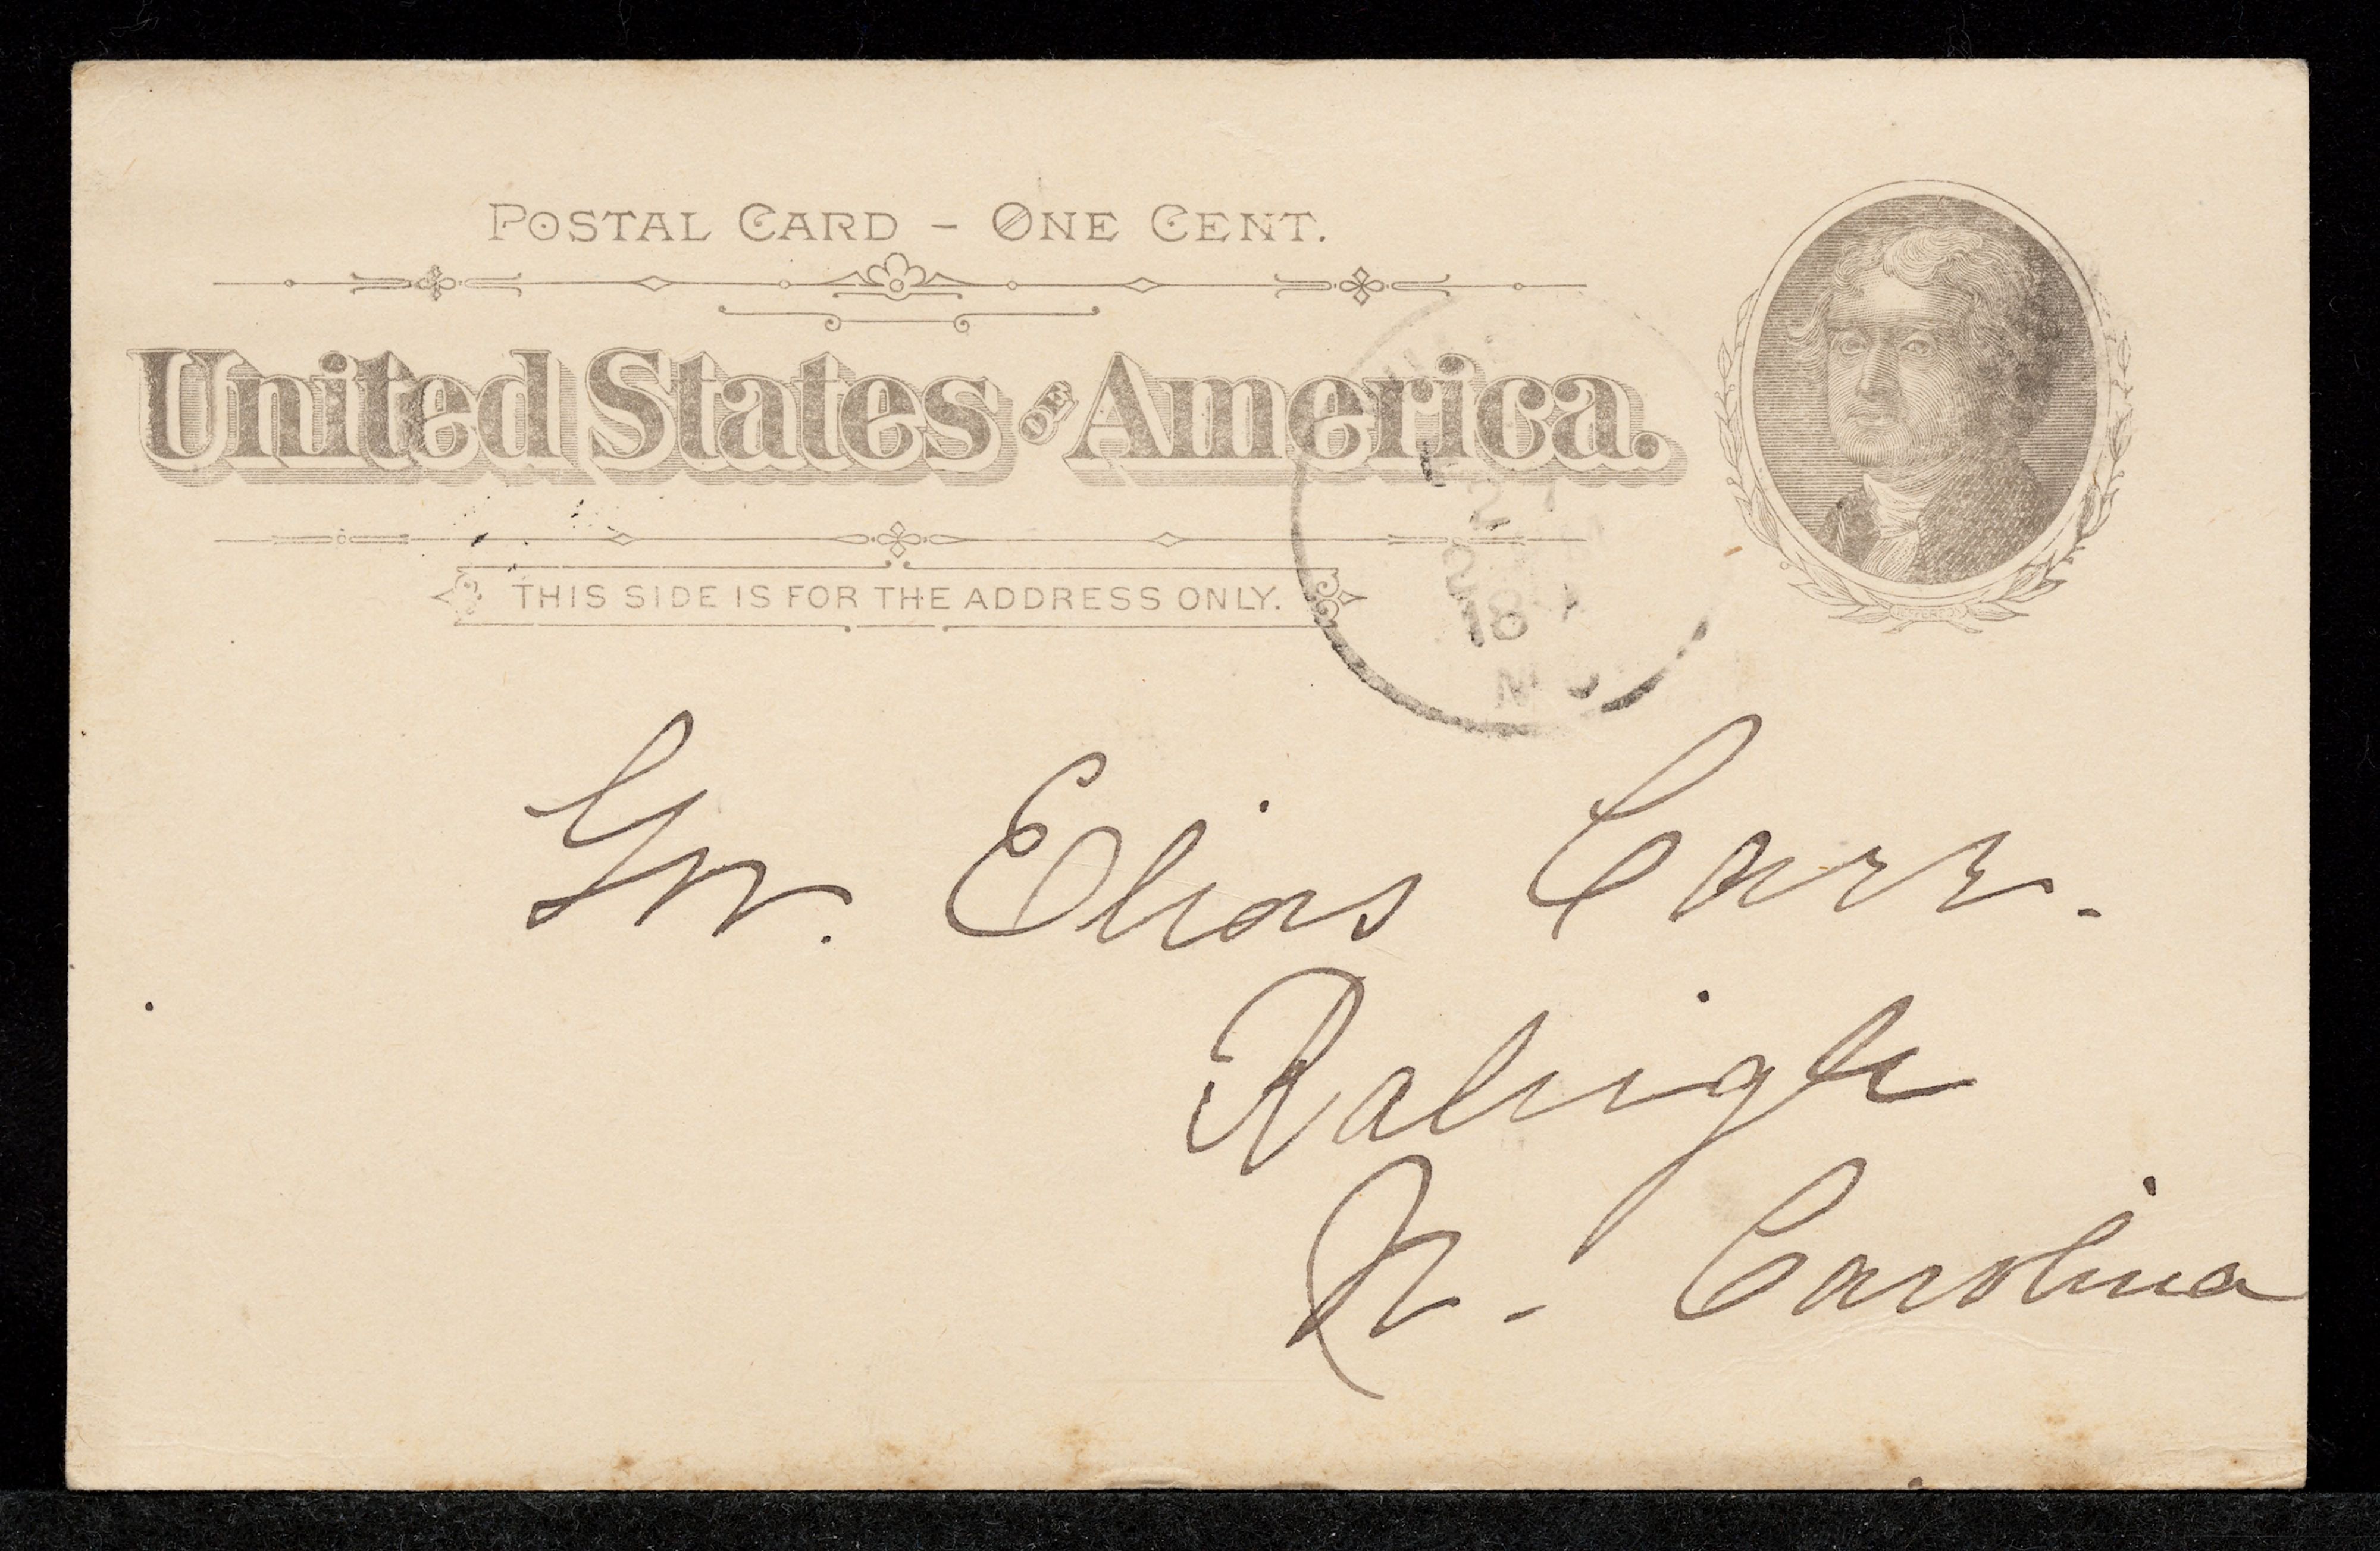 POSTAL CARD - ONE CENT.
United States OF America.
THIS SIDE IS FOR THE ADDRESS ONLY.
2
18
Gov. Elias Carr.
Raleigh
N. Carolina